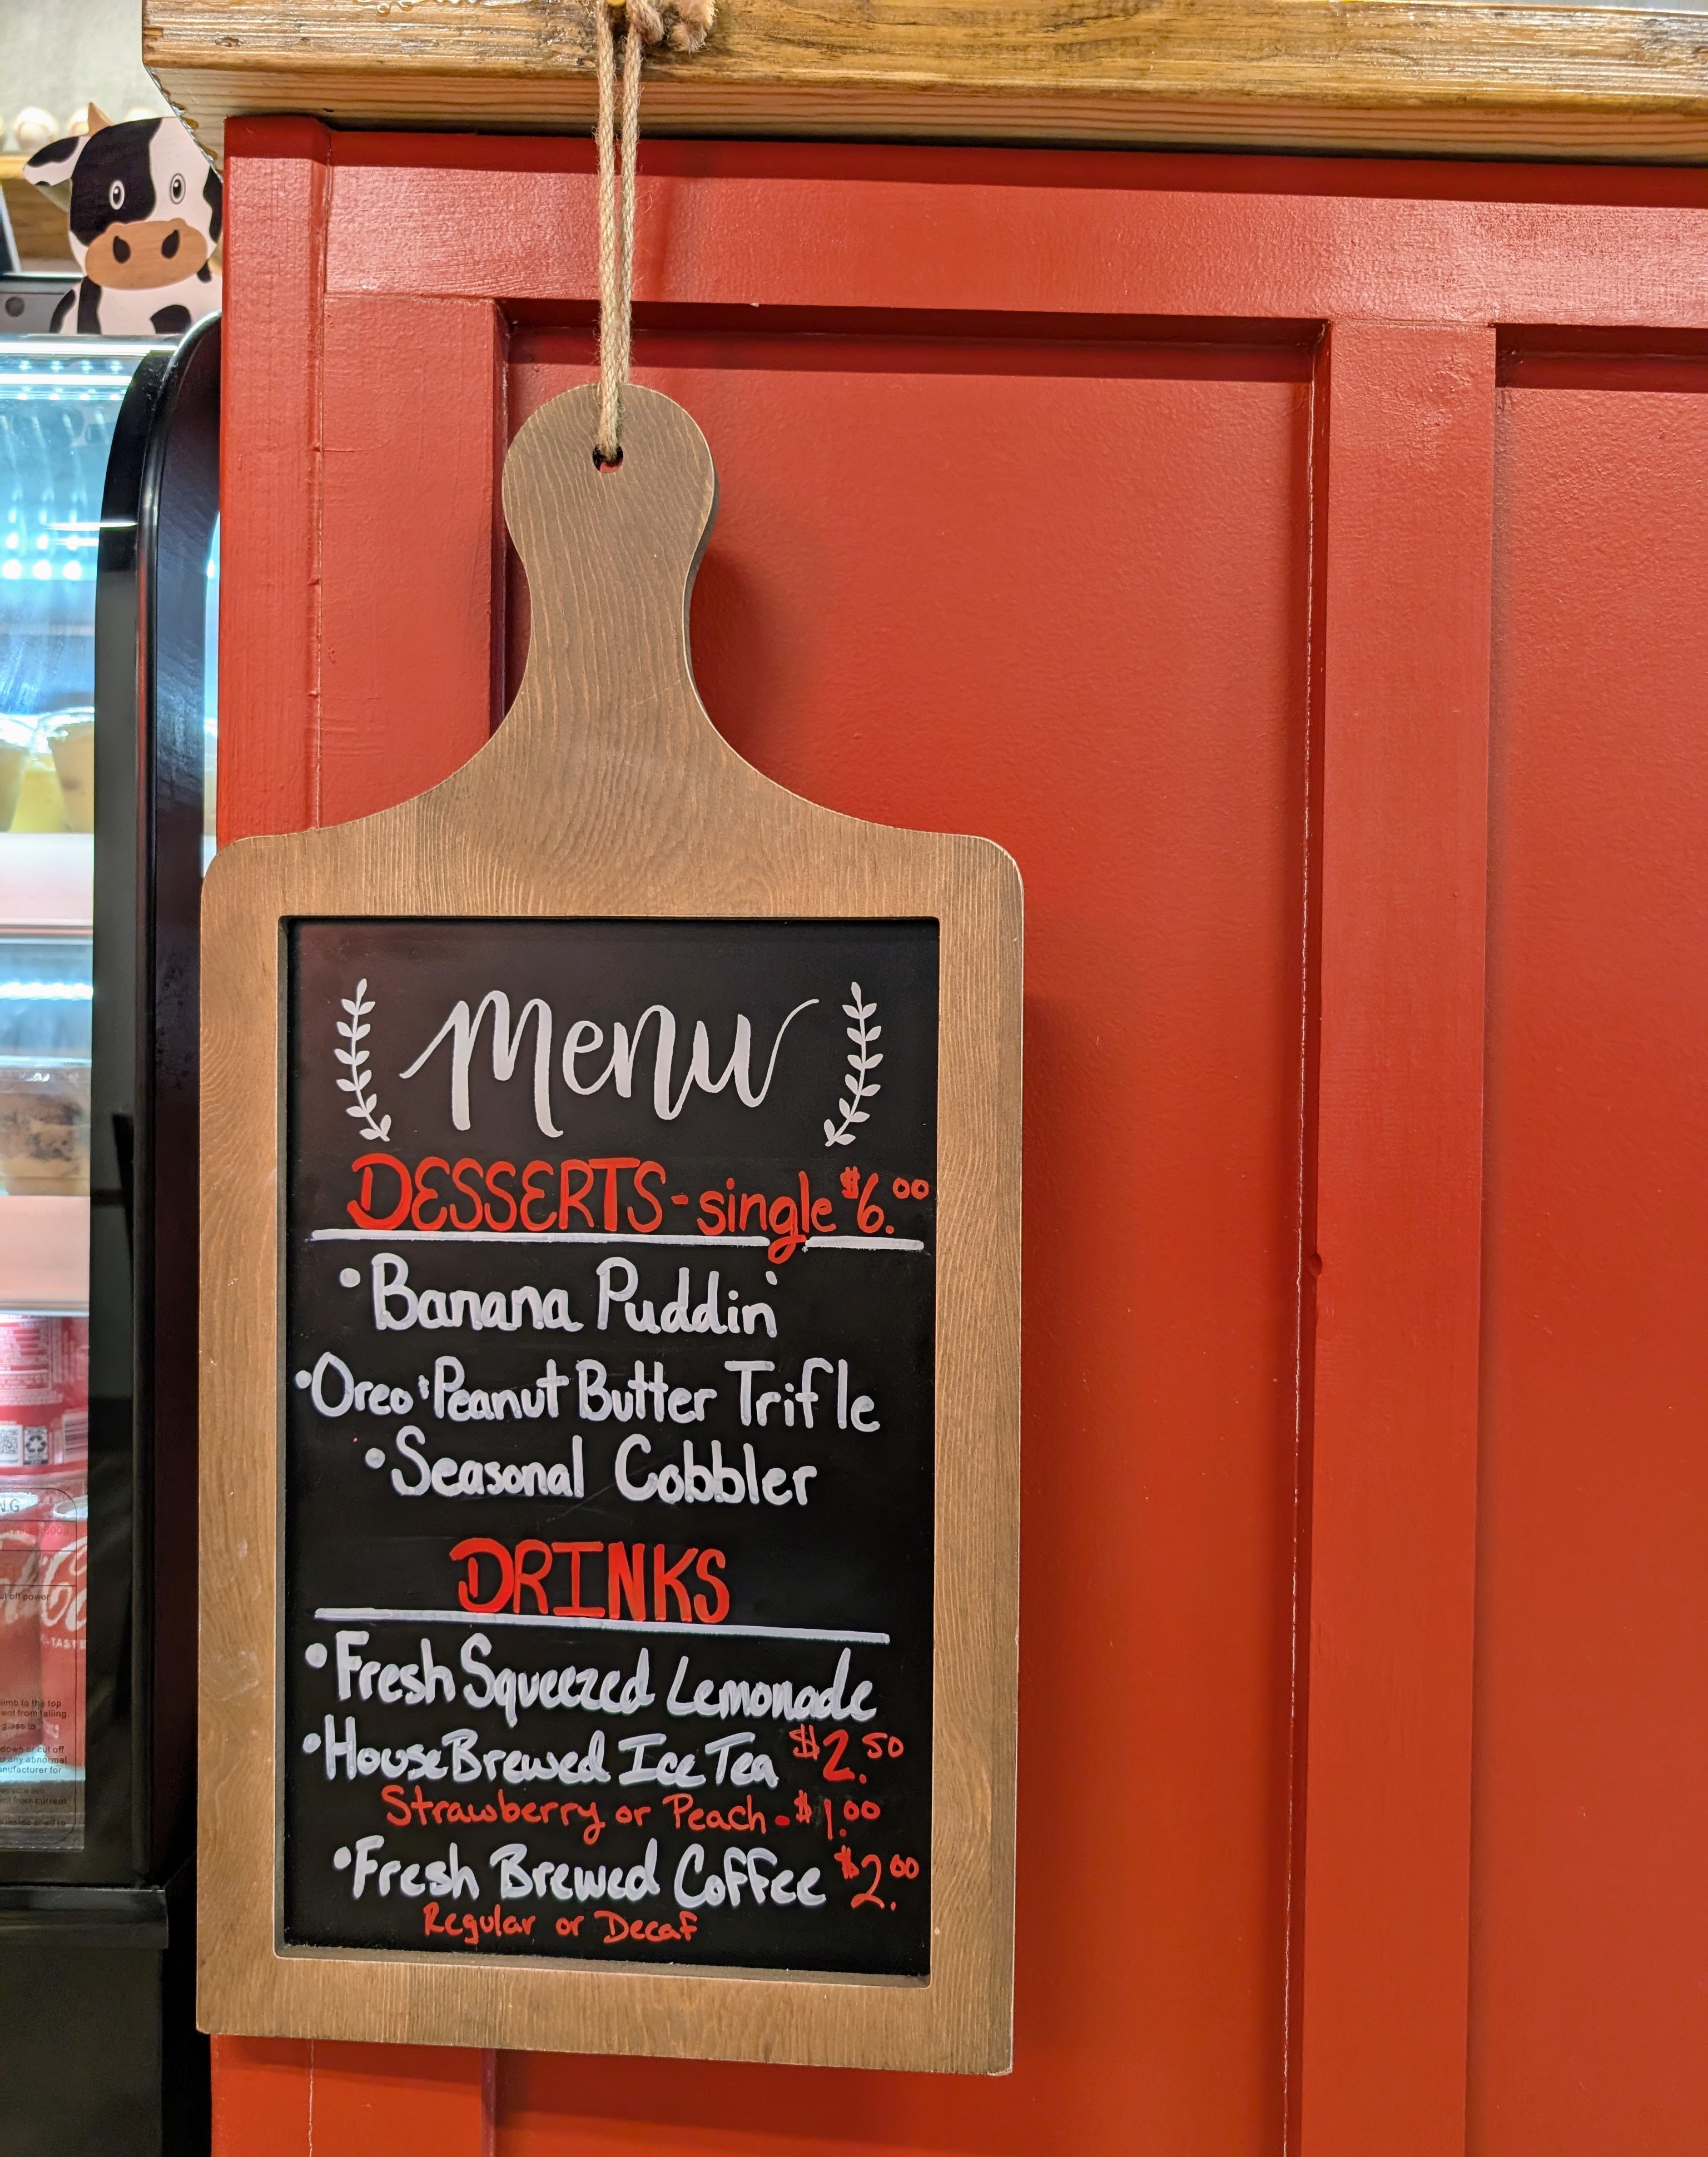 Menu
DESSERTS - single $6.00
• Banana Puddin'
• Oreo & Peanut Butter Trifle
• Seasonal Cobbler
DRINKS
• Fresh Squeezed Lemonade
• House Brewed Ice Tea $2.50
Strawberry or Peach - $1.00
• Fresh Brewed Coffee $2.00
Regular or Decaf